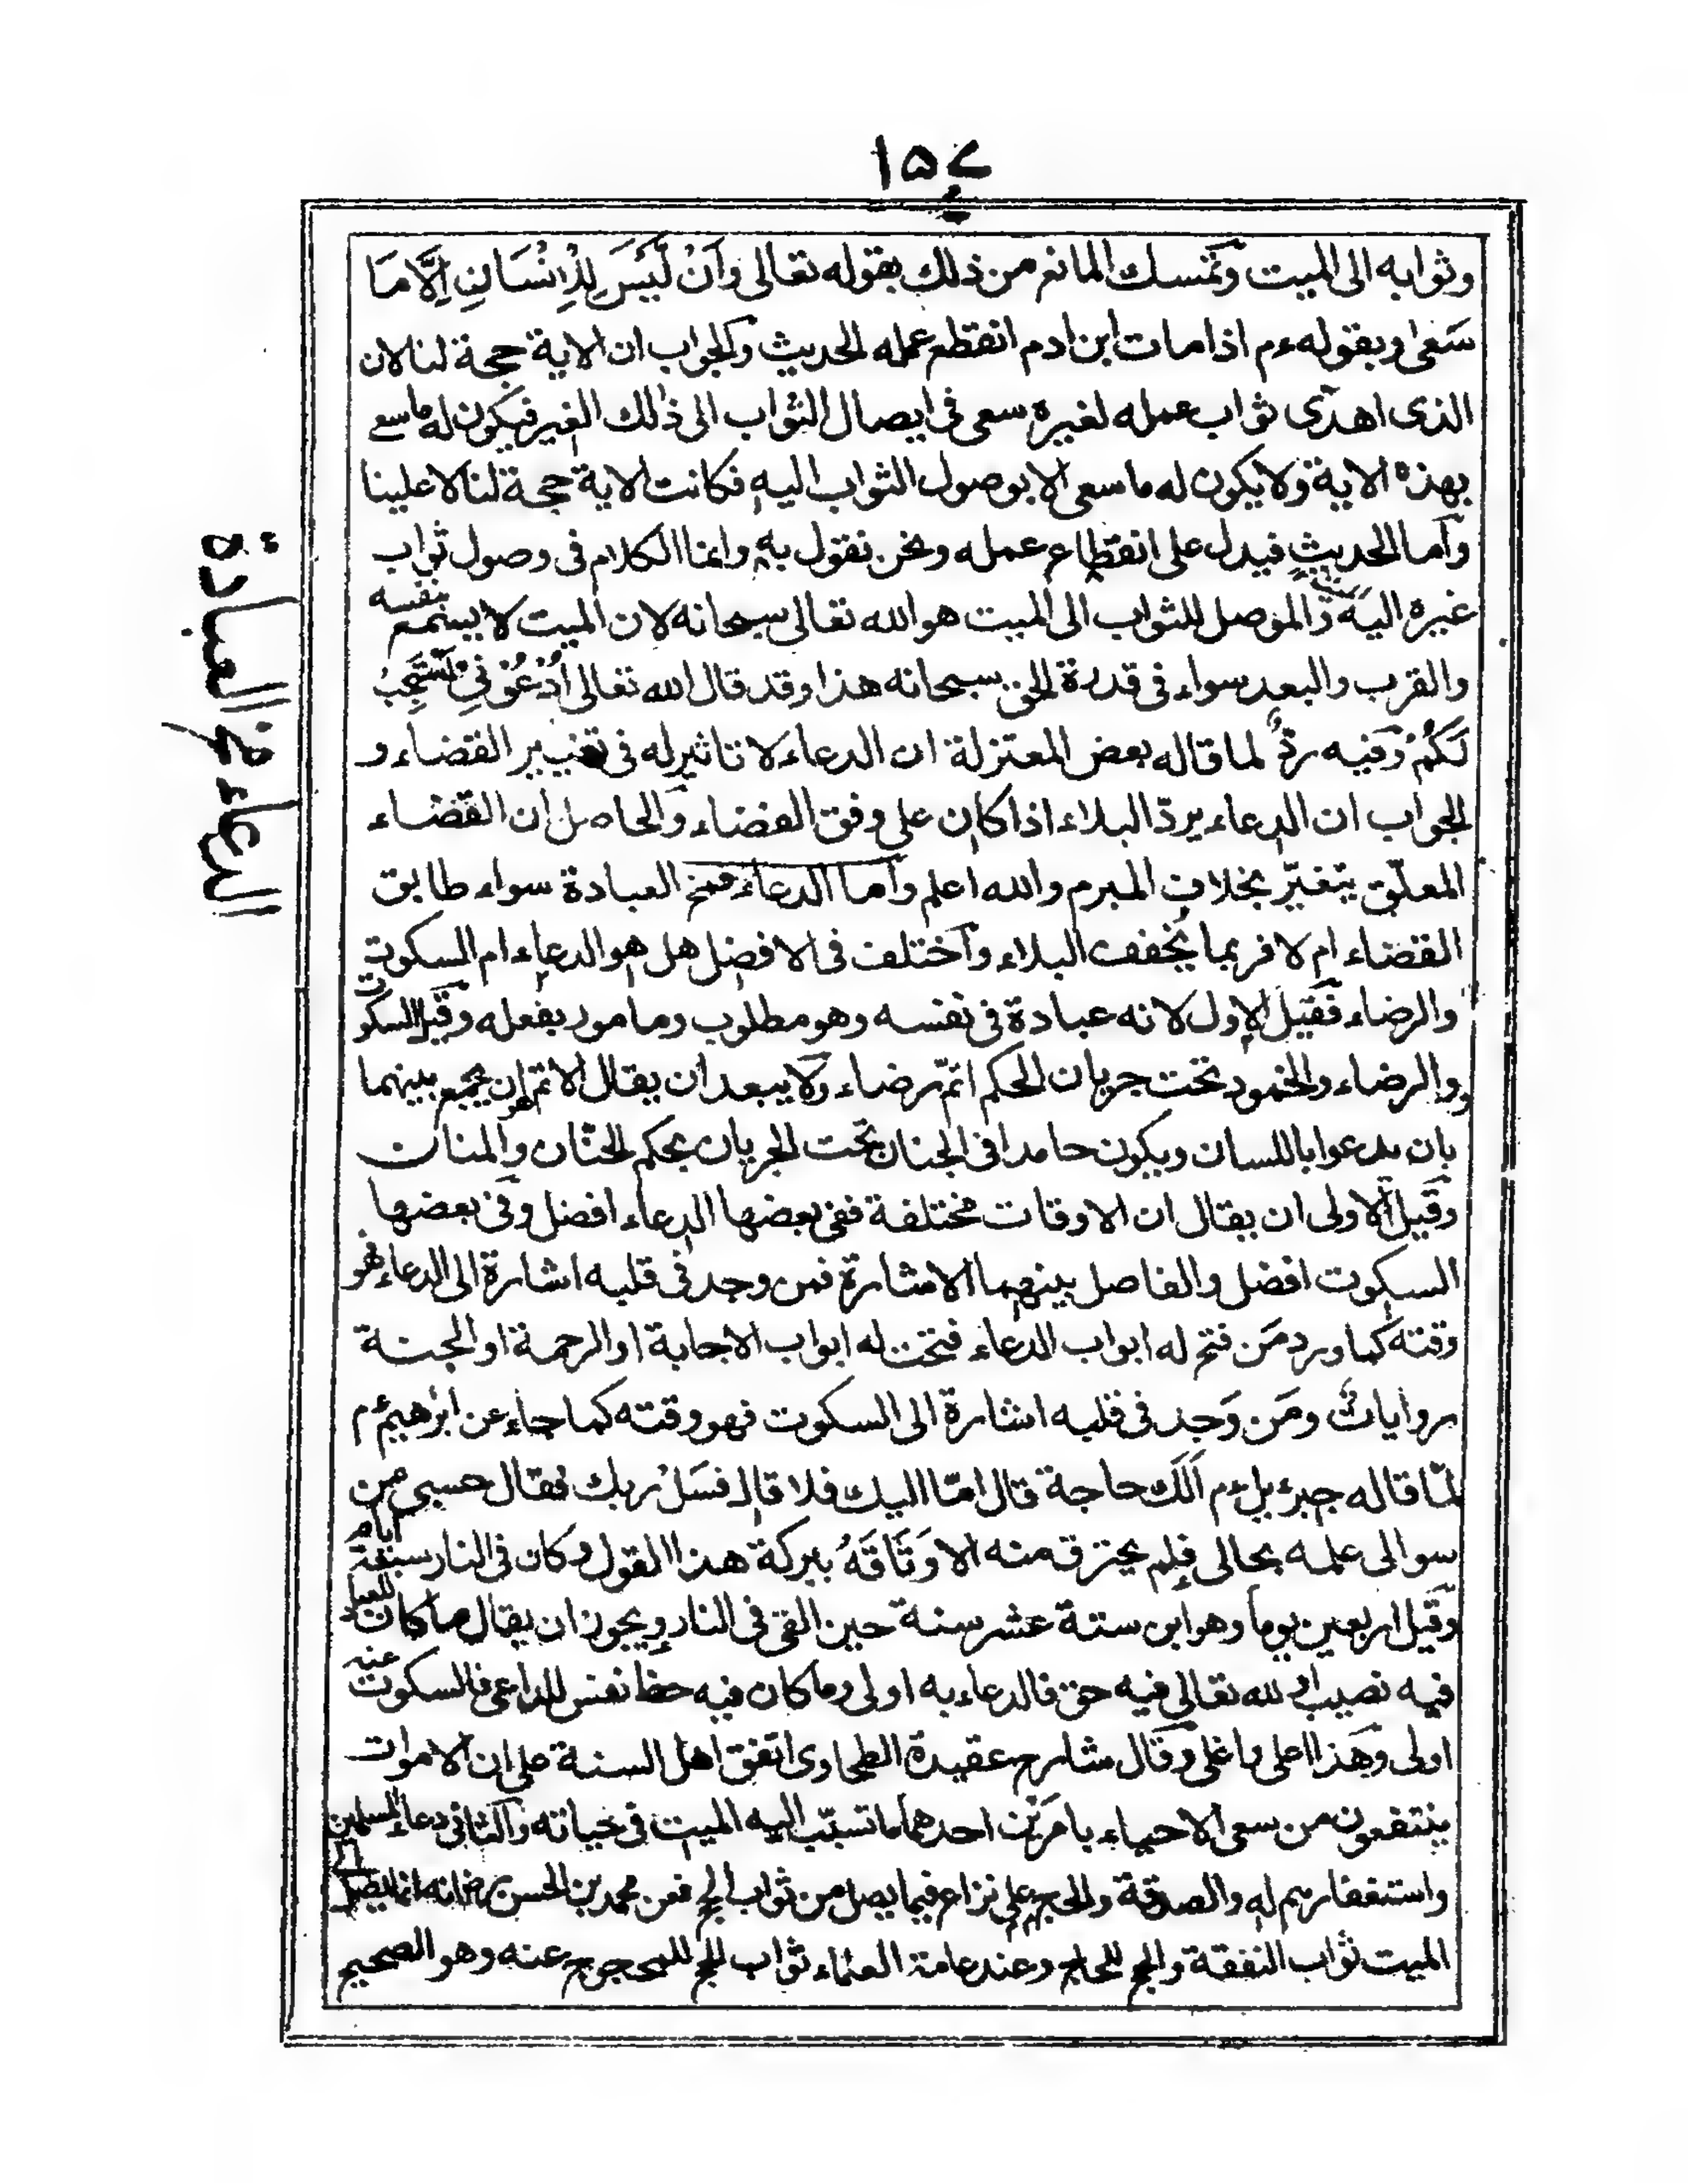 ١٥٤
وثوابه الى الميت وتمسك المانع من ذلك بقوله تعالى وَاَنْ لَّيْسَ لِلْاِنْسَانِ اِلَّا مَا
سَعٰى وبقوله ءم اذا مات ابن ادم انقطع عمله الحديث والجواب ان الاية حجة لنا لان
الذى اهدى ثواب عمله لغيره سعى فى ايصال الثواب الى ذلك الغير فيكون له ما سعى
بهذه الاية ولا يكون له ما سعى الا بوصول الثواب اليه فكانت الاية حجة لنا لا علينا
وآما الحديث فيدل على انقطاع عمله ونحن نقول به وانما الكلام فى وصول ثواب
غيره اليه والموصل للثواب الى الميت هو الله تعالى سبحانه لان الميت لا يسمع بنفسه
والقرب والبعد سواء فى قدرة الحق سبحانه هذا وقد قال الله تعالى اُدْعُوْنِيْ اَسْتَجِبْ
لَكُمْ وفيه ردٌّ لما قاله بعض المعتزلة ان الدعاء لا تاثير له فى تغيير القضاء و
الجواب ان الدعاء يردّ البلاء اذا كان على وفق القضاء والحاصل ان القضاء
المعلّق يتغيّر بخلاف المبرم والله اعلم وآما الدعاء فمخ العبادة سواء طابق
القضاء ام لا فربما يُخفف البلاء وآختلف فى الافضل هل هو الدعاء ام السكوت
والرضاء فقيل الاول لانه عبادة فى نفسه وهو مطلوب ومامور بفعله وقيل السكوت
والرضاء والخمود تحت جريان الحكم اتمّ رضاء ولا يبعد ان يقال الاتم هو ان يجمع بينهما
بان يدعوا باللسان ويكون حامدا فى الجنان تحت الجريان بحكم الحنّان والمنان
وقيل الاولى ان يقال ان الاوقات مختلفة ففى بعضها الدعاء افضل وفى بعضها
السكوت افضل والفاصل بينهما الاشارة فمن وجد فى قلبه اشارة الى الدعاء فهو
وقته كما ورد مَن فتح له ابواب الدعاء فتحت له ابواب الاجابة او الرحمة او الجنة
رواياتٌ ومَن وَجد فى قلبه اشارة الى السكوت فهو وقته كما جاء عن ابرٰهيم ءم
لمّا قاله جبرءيل ءم اَلَكَ حاجة قال امّا اليك فلا قال فسَلْ ربك فقال حسبى من
سوالى علمه بحالى فلم يحترق منه الا وَثَاقَهُ ببركة هذا القول وكان فى النار سبعة ايام
وقيل اربعين يوماً وهو ابن ستة عشر سنة حين القى فى النار ويجوز ان يقال ما كان للعباد
فيه نصيب او لله تعالى فيه حق فالدعاء به اولى وما كان فيه حظ نفس للداعى فالسكوت عنه
اولى وهذا اعلى واغلى وقال شارح عقيدة الطحاوى اتفق اهل السنة على ان الاموات
ينتفعون من سعى الاحياء بامرَيْن احدهما ما تسبّب اليه الميت فى حياته والثانى دعاء المسلمين
واستغفارهم له والصدقة والحج على نزاع فيما يصل من ثواب الحج فعن محمد بن الحسن رح انه انما يصل الى
الميت ثواب النفقة والحج للحاج وعند عامة العلماء ثواب الحج للمحجوج عنه وهو الصحيح
الدعاء مخ العبادة